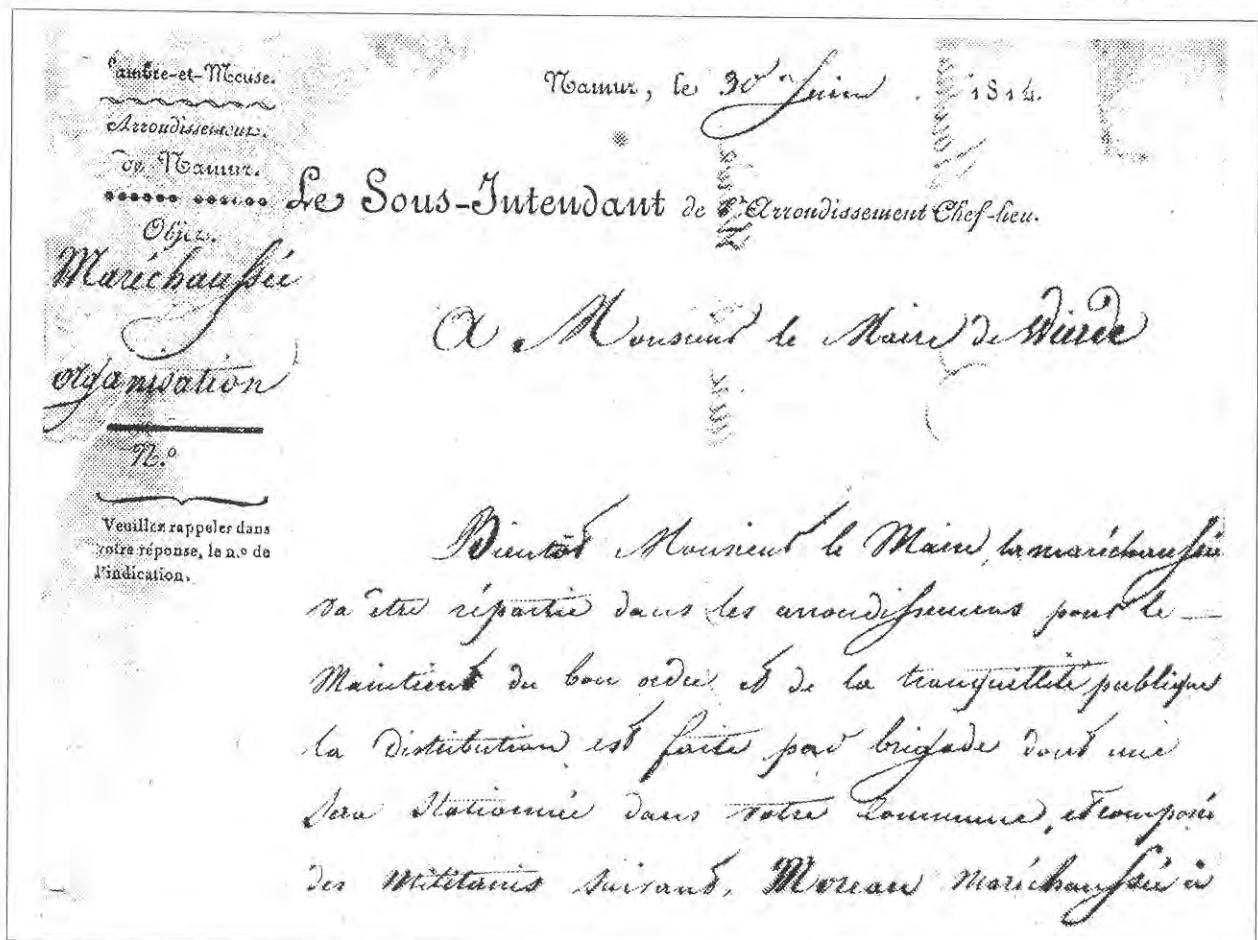 Sambre-et-Meuse.
Arrondissement
de Namur.
Objet.
Maréchaussée
organisation
N.º
Veuillez rappeler dans
votre réponse, le n.º de
l'indication.
Namur, le 30 Juin 1814.
Le Sous-Intendant de l'Arrondissement Chef-lieu.
A Monsieur le Maire de Wierde
Bientôt Monsieur le Maire, la maréchaussée
va être répartie dans les arrondissemens pour le
Maintient du bon ordre et de la tranquillité publique
la distribution est faite par brigade dont une
sera stationnée dans votre commune, et composée
des militaires suivant, Moreau maréchaussée à